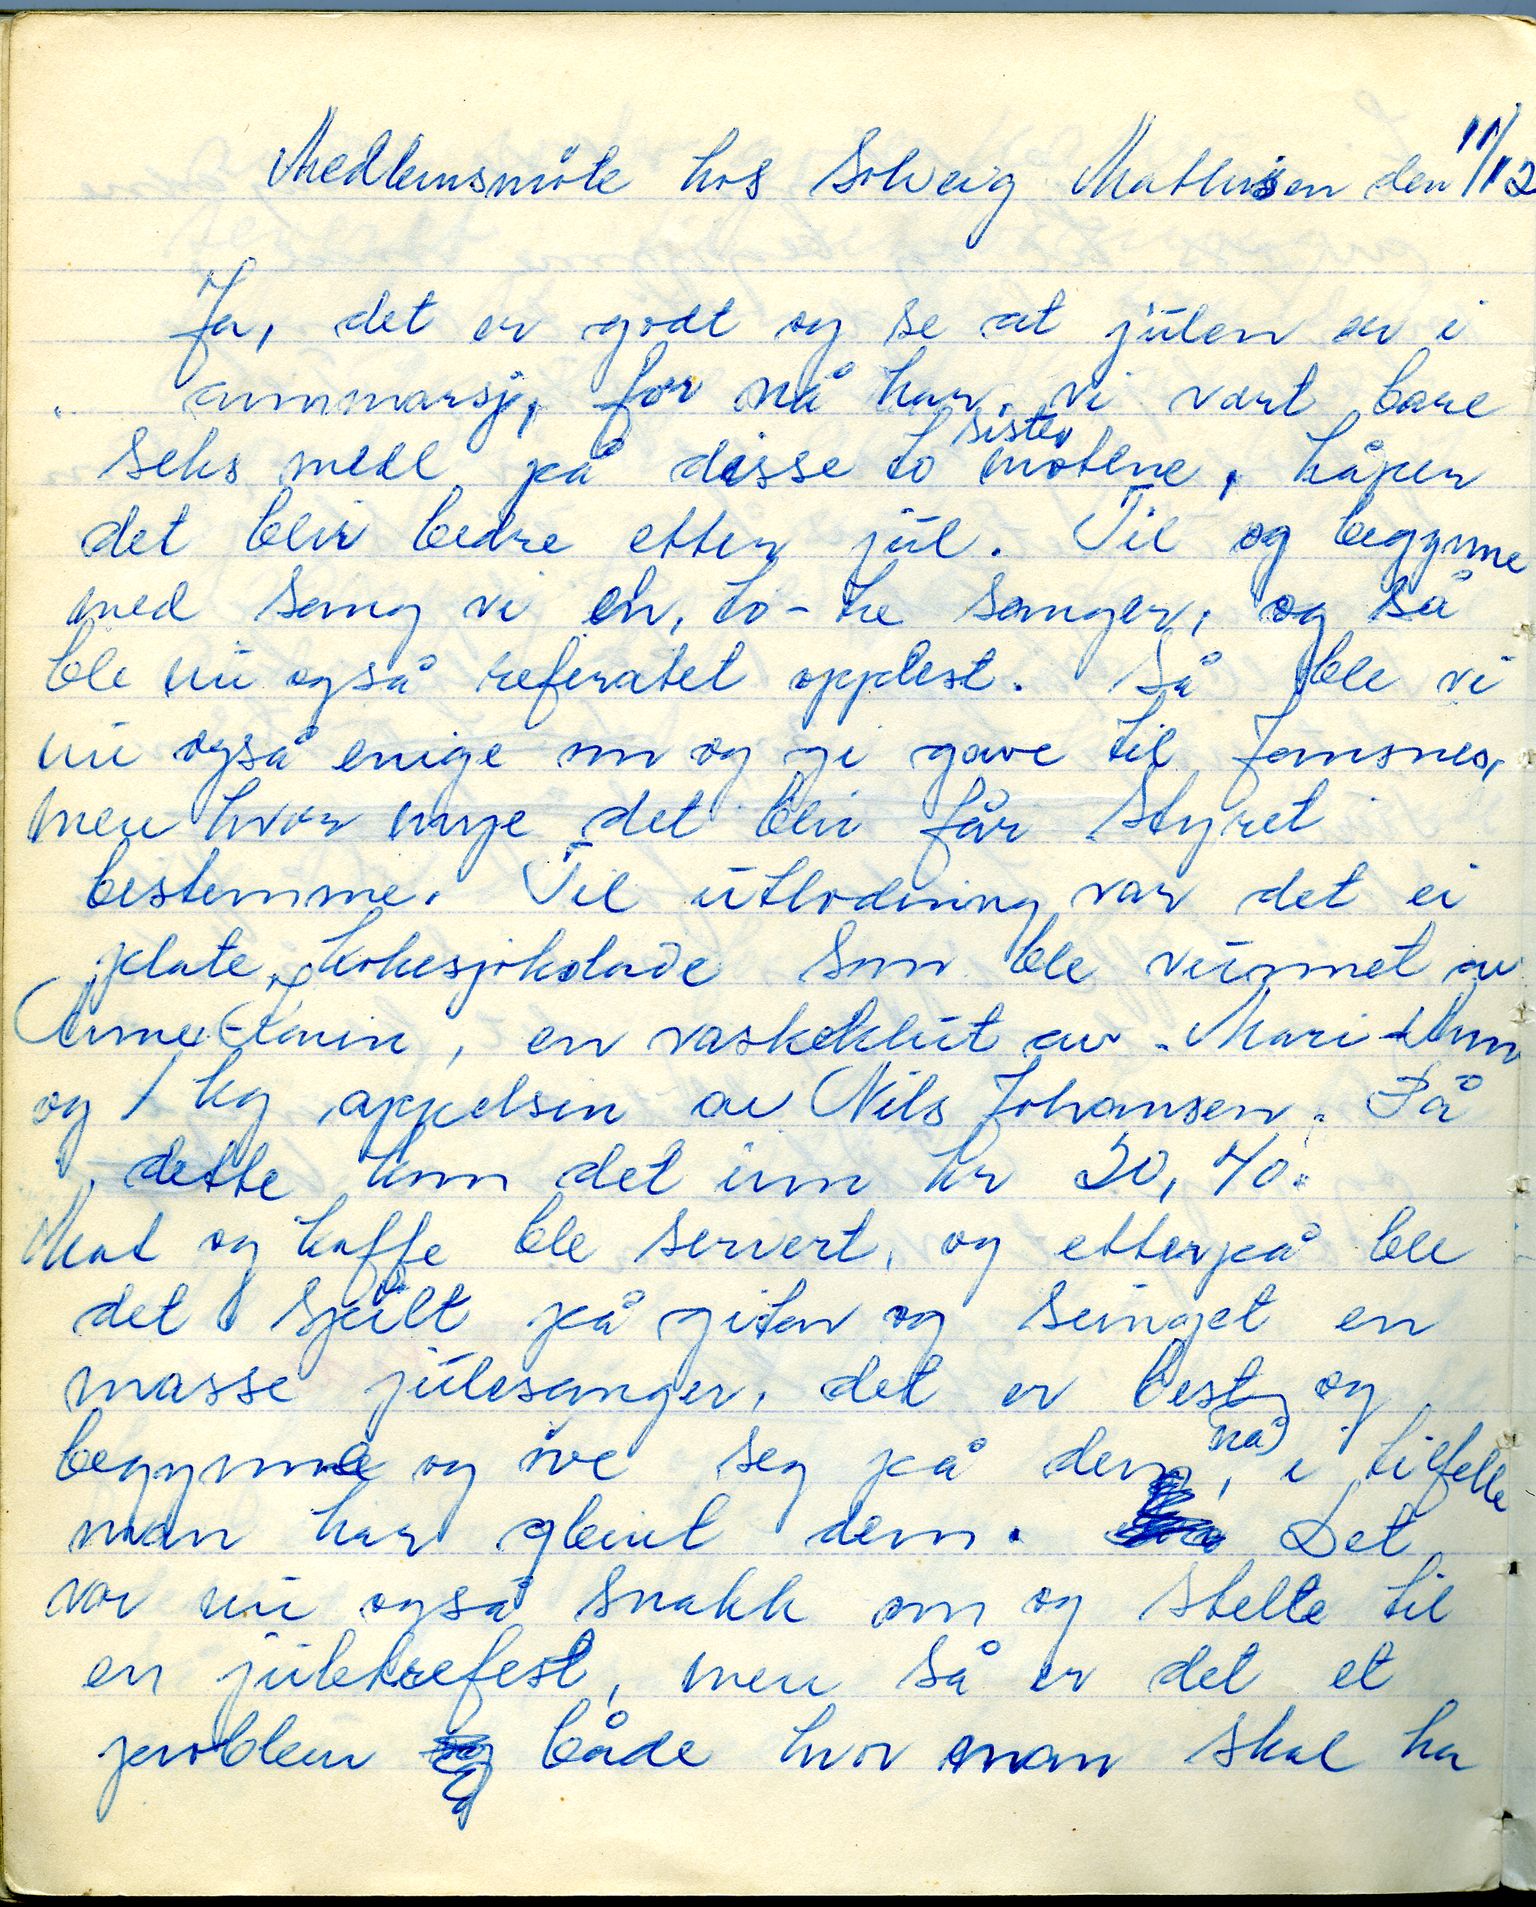 Medlemsmöte hos Solveig Mathisen den 11/12
Ja, det er godt og se at julen er i
ammarsj, for nå har vi vært bare
seks medl på disse to siste møtene, håper
det blir bedre etter jul. Til og begynne
med sang vi en, to-tre sanger, og så
ble nu også referatet opplest. Så ble vi
nu også enige om og gi gave til Jansnes,
men hvor mye det blir får Styret
bestemme. Til utlodning var det ei
plate kokesjokolade som ble vunnet av
Anne-Karin, en vaskeklut av Mari Ann
og 1 kg appelsin av Nils Johansen. På
dette kom det inn kr 20,40.
Mat og kaffe ble servert, og etterpå ble
det spilt på gitar og sunget en
masse julesanger, det er best og
begynne og øve seg på dem nå, i tilfelle
man har glemt dem. Det
var nu også snakk om og stelte til
en juletrefest, men så er det et
problem både hvor man skal ha